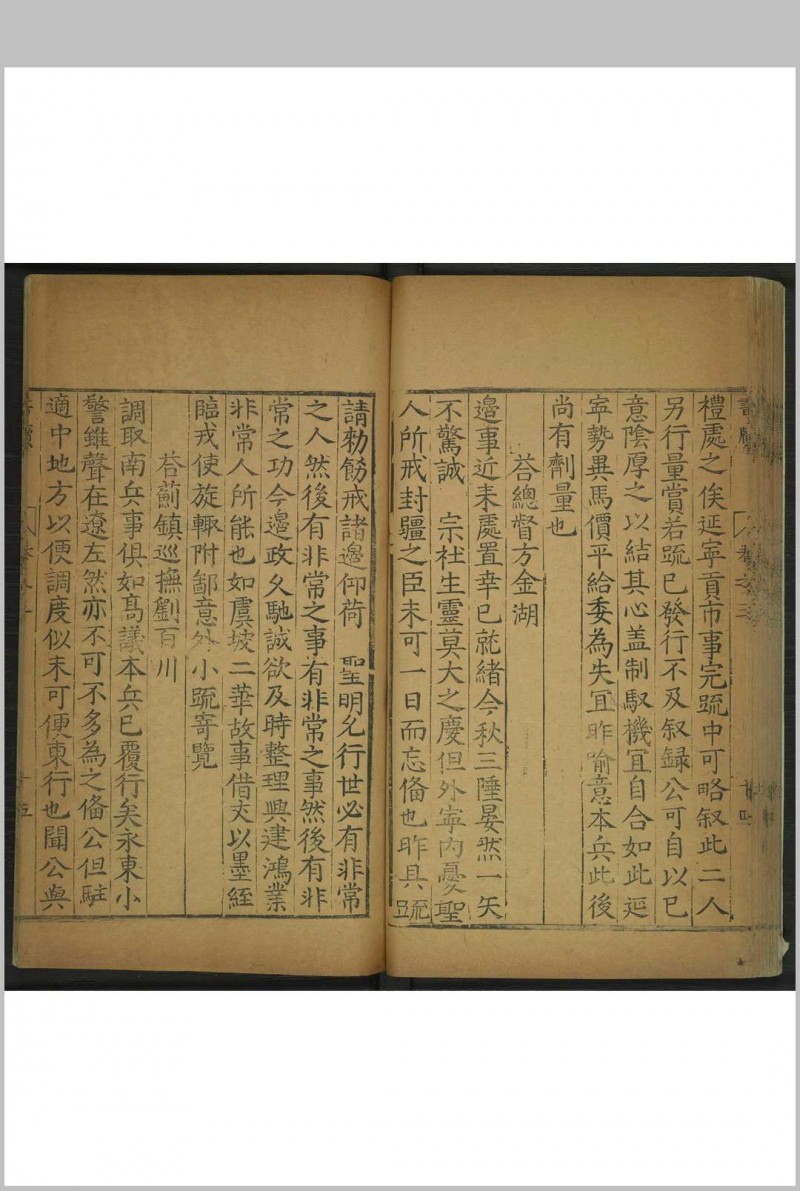 禮處之俟延寧貢市事完䟽中可略叙此二人
另行量賞若䟽已發行不及叙録公可自以已
意隂厚之以結其心盖制馭機宜自合如此延
寧勢異馬價平給委為失宜昨喻意本兵此後
尚有劑量也
荅總督方金湖
邉事近来處置幸已就緒今秋三陲晏然一矢
不驚誠 宗社生靈莫大之慶但外寧内憂聖
人所戒封疆之臣未可一日而忘俻也昨具䟽
請勑飭戒諸邉仰荷 聖明允行世必有非常
之人然後有非常之事有非常之事然後有非
常之功今邉政久馳誠欲及時整理興建鴻業
非常人所能也如虞坡二華故事借丈以墨絰
臨戎使旋輙附鄙意外小䟽寄覽
荅薊鎮巡撫劉百川
調取南兵事俱如髙議本兵已覆行矣永東小
警雖聲在遼左然亦不可不多為之俻公但駐
適中地方以便調度似未可便東行也聞公與